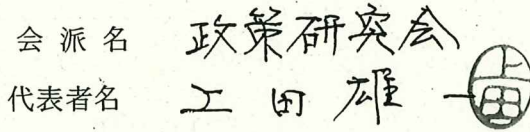 会派名 政策研究会
代表者名 上田雄一 上田